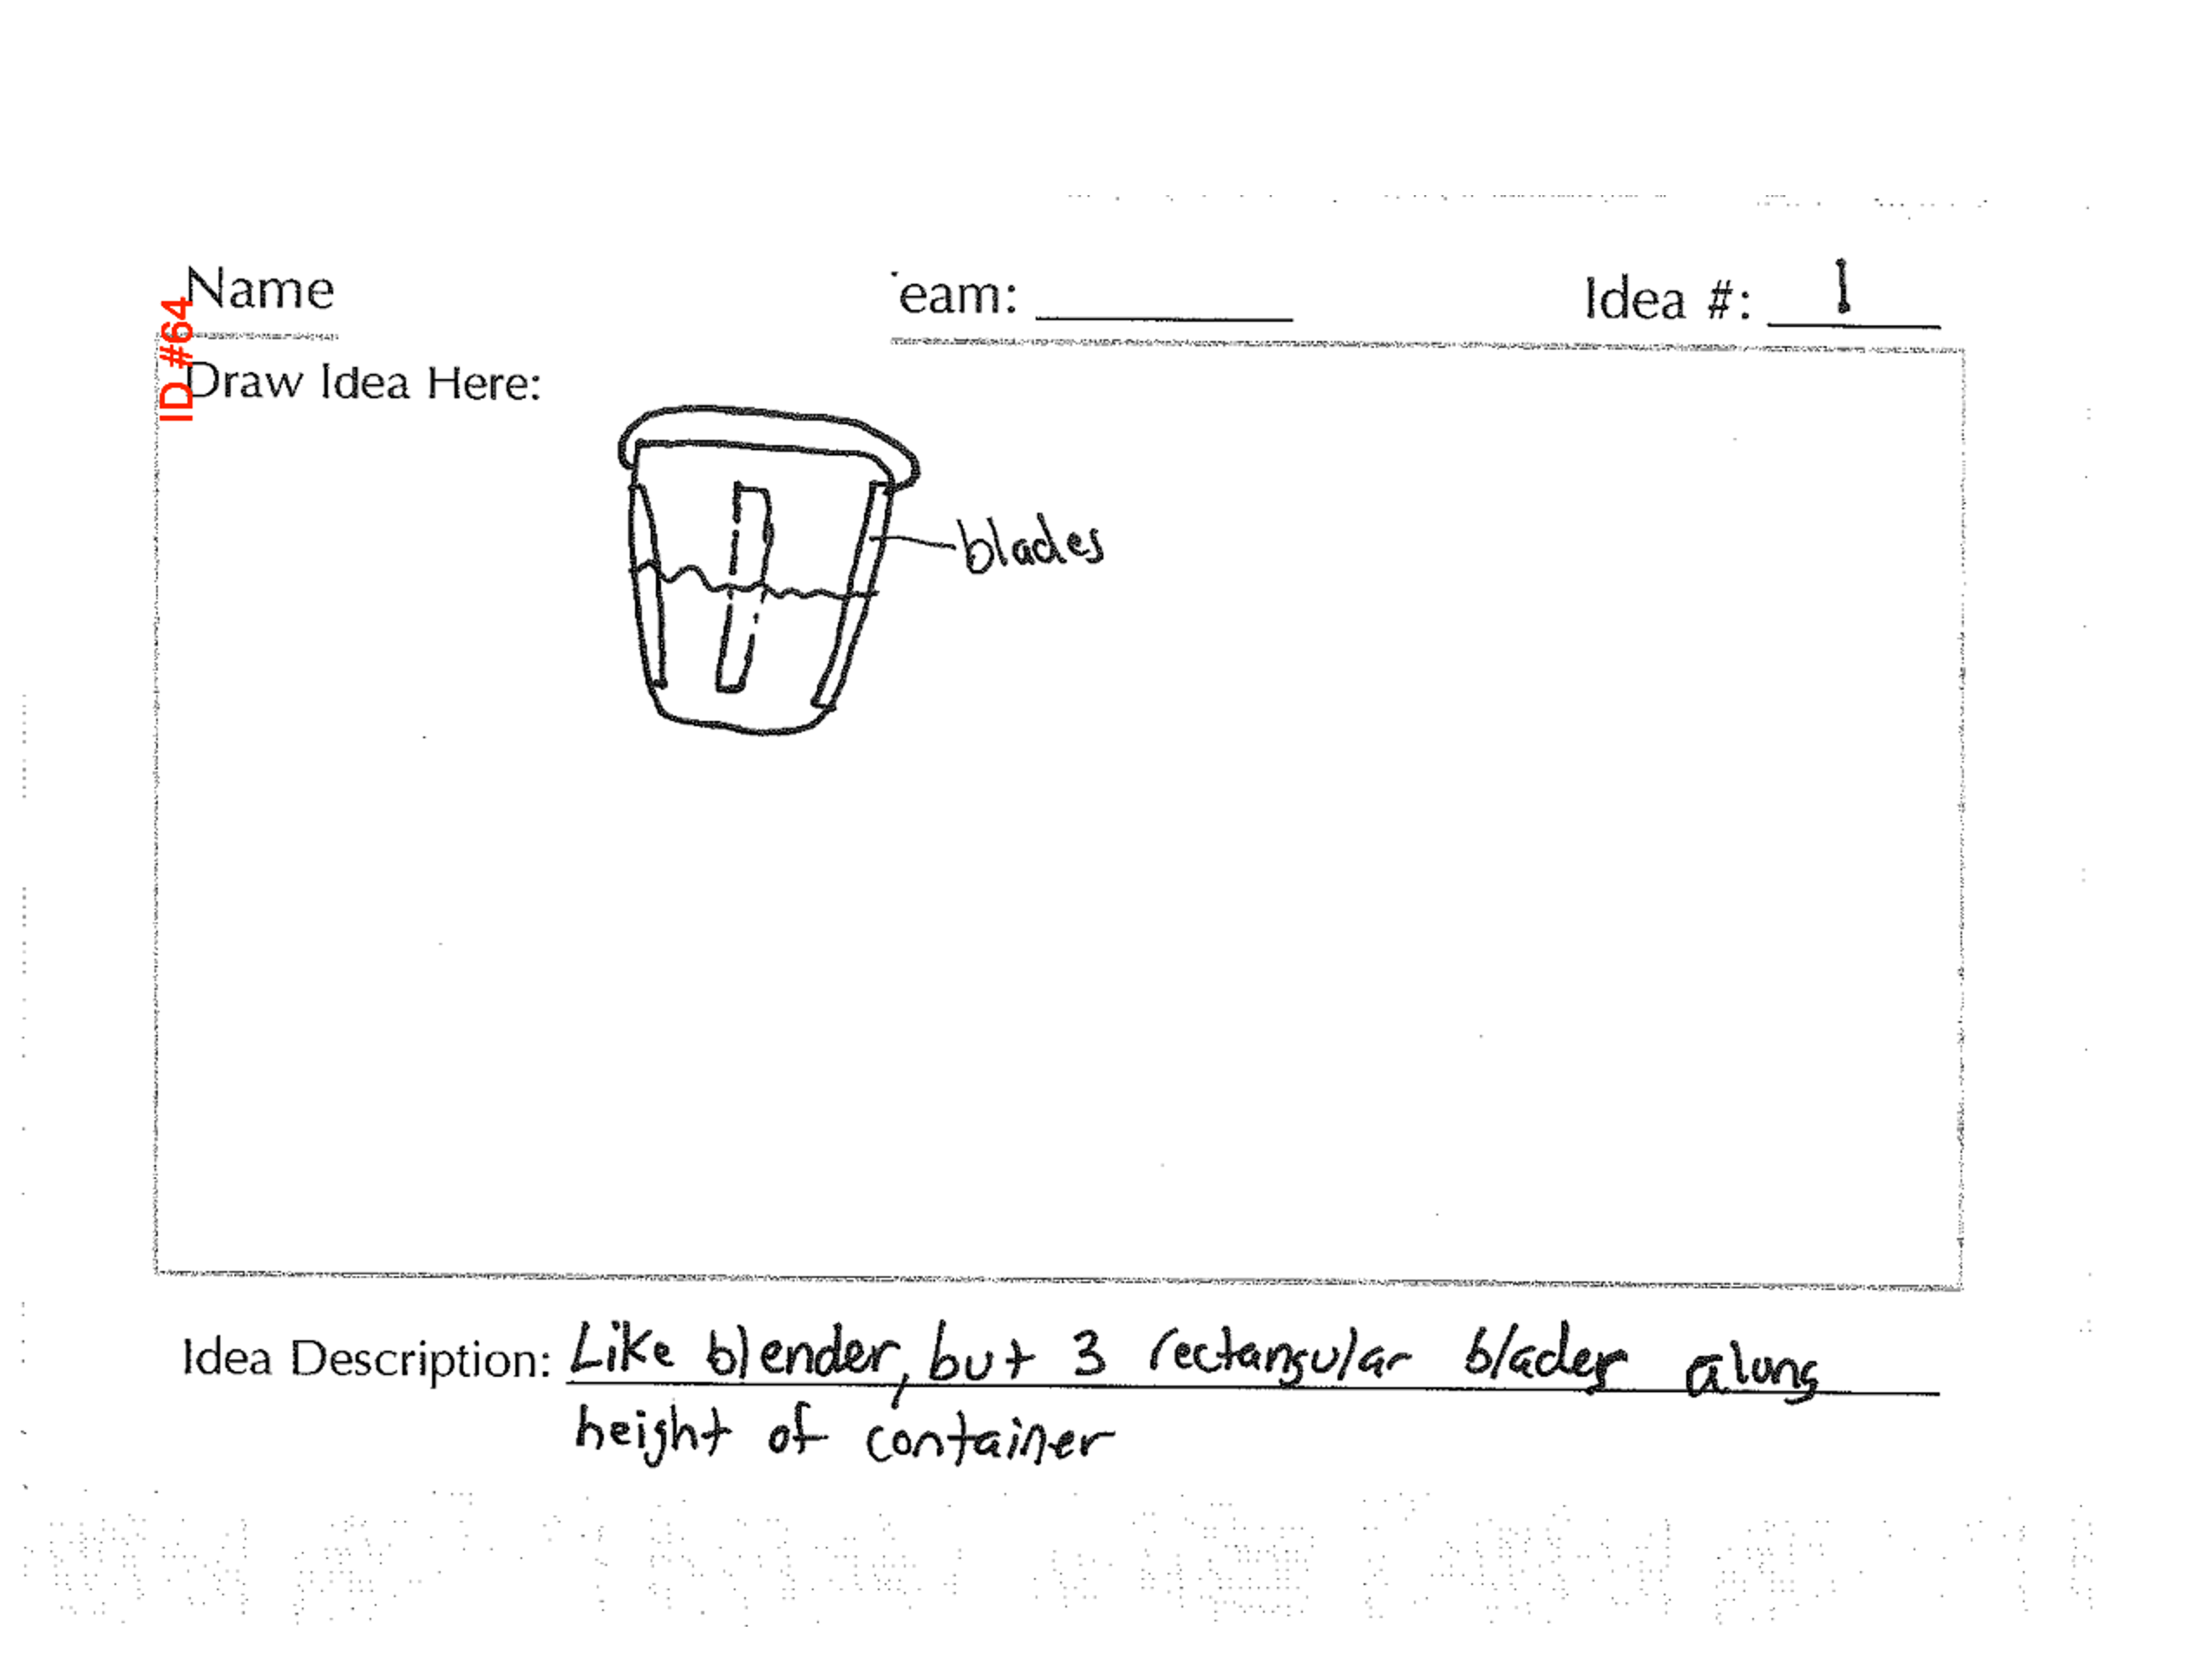 Name
eam:
Idea #: 1
ID #64
Draw Idea Here:
blades
Idea Description: Like blender, but 3 rectangular blades along
height of container